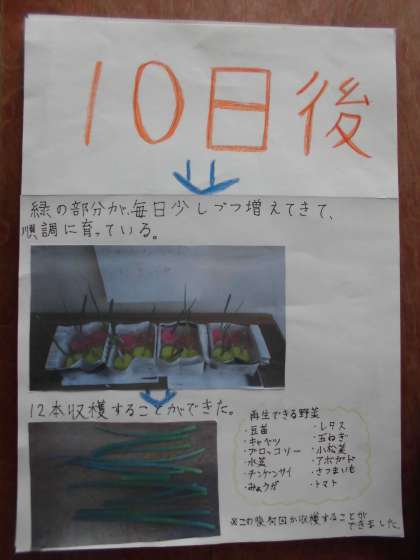 10日後
緑の部分が、毎日少しづつ増えてきて、
順調に育っている。
12本収穫することができた。
再生できる野菜
・豆苗
・キャベツ
・ブロッコリー
・水菜
・チンゲンサイ
・みょうが
・レタス
・玉ねぎ
・小松菜
・アボカド
・さつまいも
・トマト
※この後何回か収穫することが
できました。